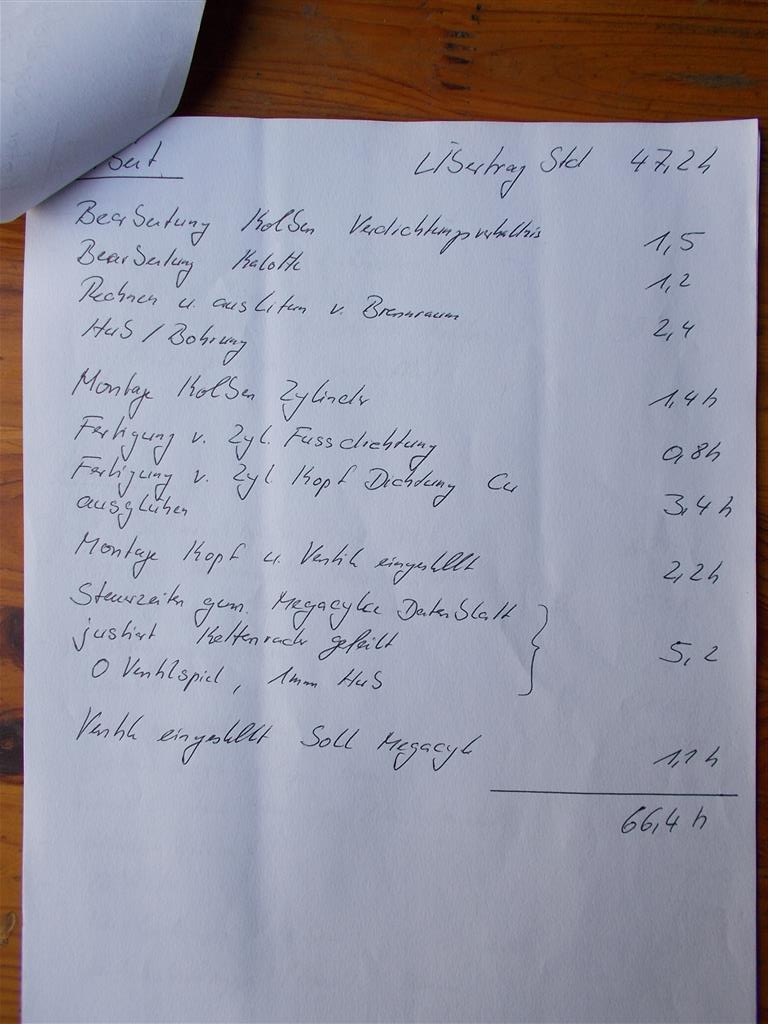 Übertrag Std 47,2h
Bearbeitung Kolben Verdichtungsverhältnis 1,5
Bearbeitung Kalotte 1,2
Rechnen u. auslitern v. Brennraum
Hub / Bohrung 2,4
Montage Kolben Zylinder 1,4h
Fertigung v. Zyl. Fussdichtung 0,8h
Fertigung v. Zyl Kopf Dichtung Cu
ausglühen 3,4h
Montage Kopf u. Ventile eingestellt 2,2h
Steuerzeiten gem. Megacycle Datenblatt
justiert Kettenrad gefeilt 5,2
0 Ventilspiel, 1mm Hub
Ventile eingestellt Soll Megacycle 1,1h
66,4h